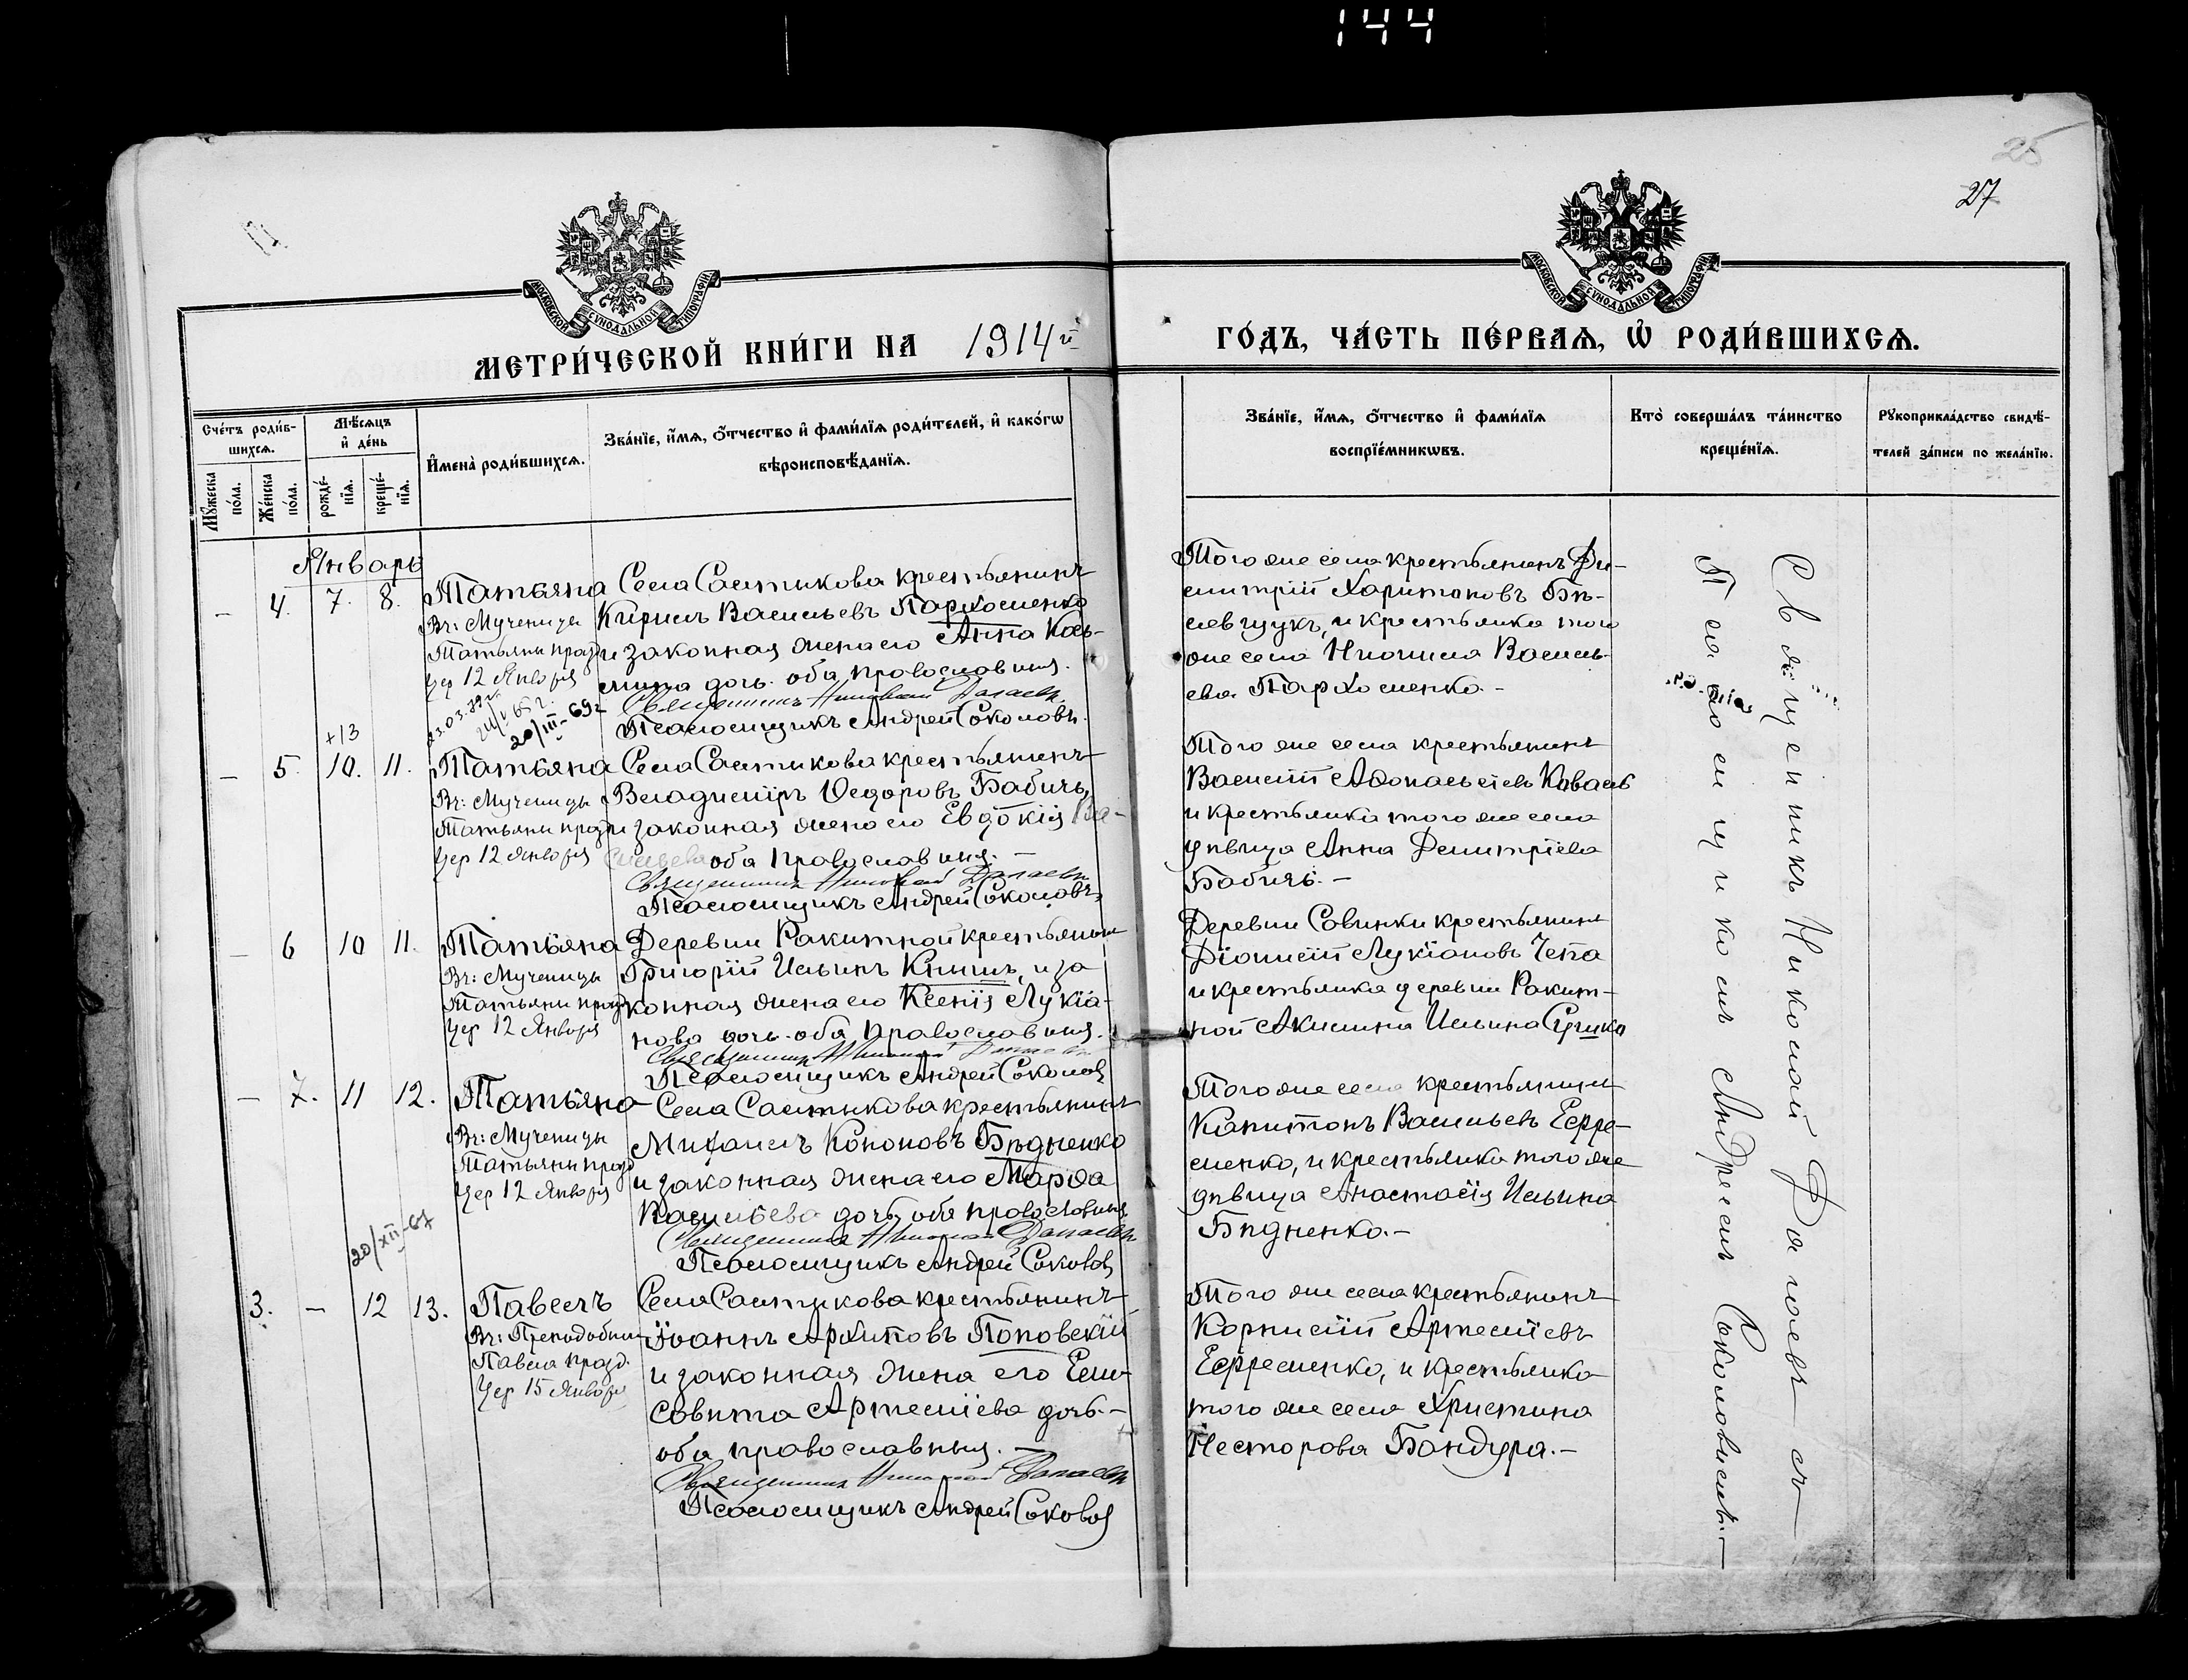 144
25
27
МОСКОВСКОЙ СѴНОДАЛЬНОЙ ТИПОГРАФІИ
МОСКОВСКОЙ СѴНОДАЛЬНОЙ ТИПОГРАФІИ
МЕТРИ́ЧЕСКОЙ КНИ́ГИ НА 1914й
ГО́ДЪ, ЧА́СТЬ ПЕ́РВАѦ, Ѡ҆ РОДИ́ВШИХСѦ.
Сче́тъ роди́в-
шихсѧ.
Мꙋжеска
по́ла.
Же́нска
по́ла.
Мѣ́сѧцъ
и҆ де́нь
рожде́-
нїѧ.
креще́-
нїѧ.
И҆мена̀ роди́вшихсѧ.
Зва́нїе, и҆́мѧ, ѻ҆́тчество и҆ фами́лїѧ роди́телей, и҆ како́гѡ
вѣроисповѣ́данїѧ.
Зва́нїе, и҆́мѧ, ѻ҆́тчество и҆ фами́лїѧ
воспрїе́мникѡвъ.
Кто̀ соверша́лъ та́инство
креще́нїѧ.
Рꙋкоприкла́дство свидѣ́-
телей за́писи по жела́нїю.
Январь
- 4. 7. 8.
Татьяна
Вч: Мученицы
Татьяны празд
уер 12 Января
23.03.
20/III-69г
Села Састикова крестьянинъ
Кирилъ Васильевъ Пархоменко
и законная жена его Анна Козь-
мина дочь. оба православныя.
Священникъ Николай
Псаломщикъ Андрей Соколовъ.
Того же села крестьянинъ Ди-
митрій Харитоновъ Бѣ-
левщукъ, и крестьянка того
же села Васильева
Пархоменко. -
+13
- 5. 10. 11.
Татьяна
Вч: Мученицы
Татьяны празд
уер 12 Января
Села Састикова крестьянинъ
Владиміръ Ѳедоровъ Бабичъ,
и законная жена его Евдокія Ва-
сильева оба православныя. -
Священникъ Николай
Псаломщикъ Андрей Соколовъ
Того же села крестьянинъ
Василій Аѳонасьевъ Коваль
и крестьянка того же села
дѣвица Анна Димитріева
Бабичъ. -
- 6 10 11.
Татьяна
Вч: Мученицы
Татьяны празд
уер 12 Января
Деревни Ракитной крестьянинъ
Григорій Ильинъ Кнышъ, и за
конная жена его Ксенія Лукіа-
нова дочь. оба православныя.
Священникъ Николай
Псаломщикъ Андрей Соколов
Деревни Савинки крестьянинъ
Діонисій Лукіановъ Чепа
и крестьянка деревни Ракит-
ной Акилина Ильина Сушко
- 7. 11 12.
Татьяна
Вч: Мученицы
Татьяны празд
уер 12 Января
20/XII-67
Села Састикова крестьянинъ
Михаилъ Кононовъ Бѣдненко
и законная жена его Марѳа
Васильева дочь, оба православныя
Священникъ Николай
Псаломщикъ Андрей Соколов
Того же села крестьянинъ
Капитонъ Васильевъ Ефре-
менко, и крестьянка того же
дѣвица Анастасія Ильина
Бѣдненко. -
3. - 12 13.
Павелъ
Вч: Преподобнаго
Павла празд.
уер 15 Января
Села Састикова крестьянинъ
Іоаннъ Архиповъ Поповскій
и законная жена его Ели-
савета Артеміева дочь. -
оба православныя. -
Священникъ Николай
Псаломщикъ Андрей Соколов
Того же села крестьянинъ
Корнилій Артеміевъ
Ефременко, и крестьянка
того же села Христина
Несторова Бондура. -
Священникъ Николай съ
Псаломщикомъ Андреемъ Соколовымъ. -